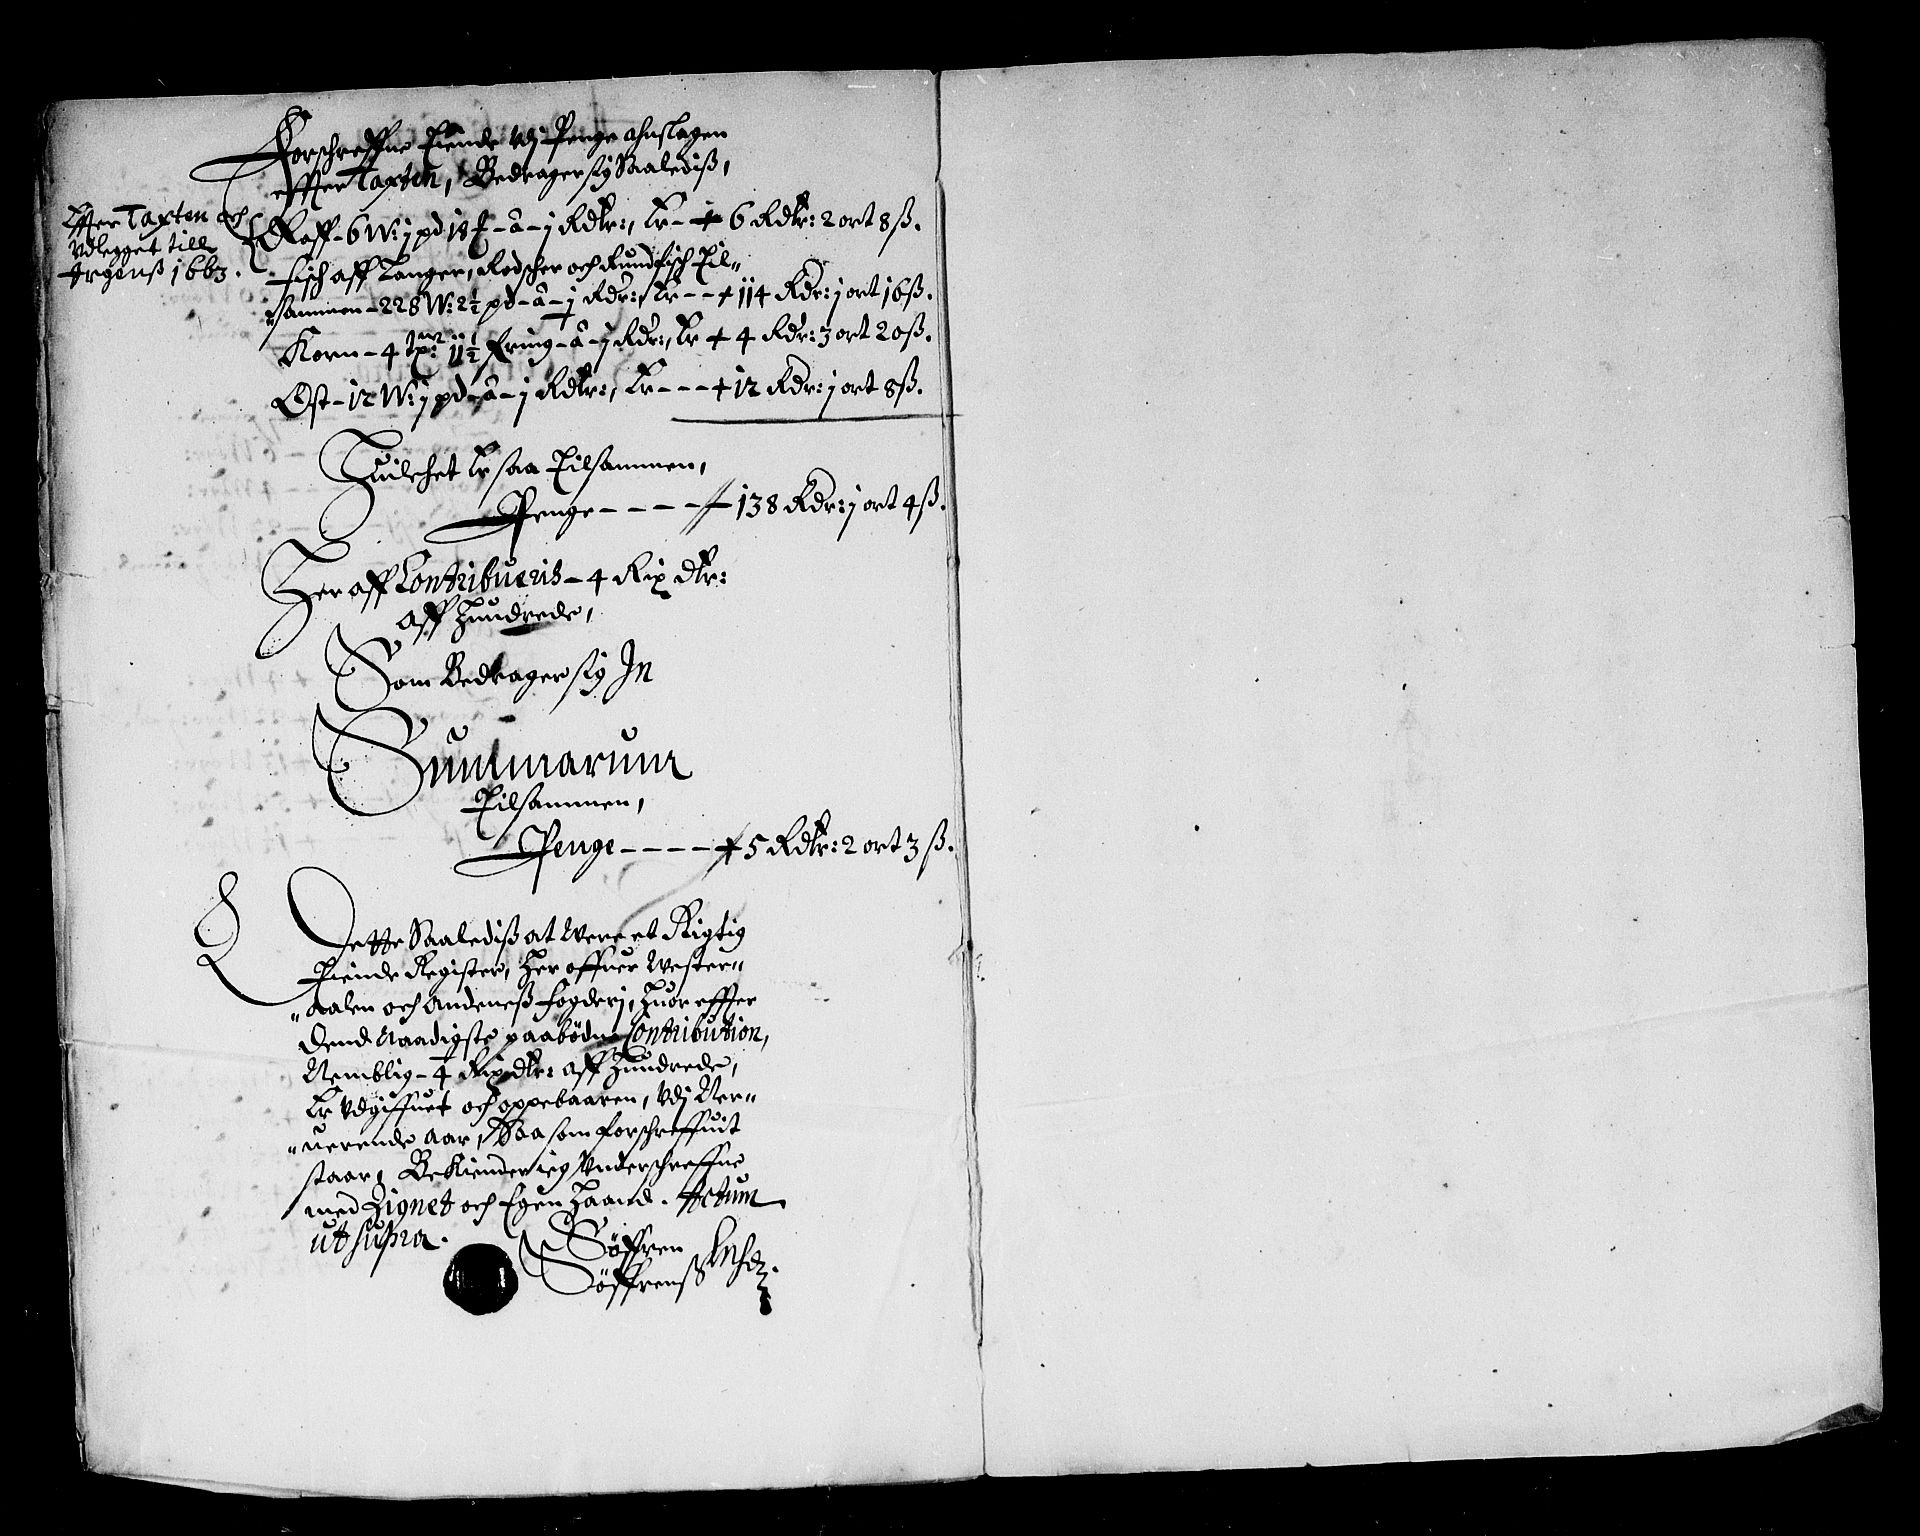 Forschreffne Tiende Udj Penge Anslagen
effter Taxten, Bedrager sig Saalediß,
Effter Taxten och
Udlegget till
Argenß 1663.
Raff - 6 W: j pd 18 # - â - j Rdlr:, Er - + 6 Rdlr: 2 ort 8 ß.
Fisch aff Langer, Rodscher och Rundfisch Til-
sammen - 228 W: 2½ pd - â - j Rdr:, Er - - + 114 Rdr: j ort 16 ß.
Korn - 4 11½ - â - j Rdr:, Er + 4 Rdr: 3 ort 20 ß.
Ost - 12 W: j pd - â - j Rdlr:, Er - - - + 12 Rdr: j ort 8 ß.
Huilchet Er saa Tilsammen,
Penge - - - - + 138 Rdr: j ort 4 ß.
Her aff Contribueris - 4 Rix dlr:
aff Hundrede,
Som Bedrager sig In
Summarum
Tilsammen,
Penge - - - - + 5 Rdlr: 2 ort 3 ß.
Dette Saalediß at Were et Rigtig
Tiende Register, Her offuer Wester-
aalen och Andeneß Fogderj, Huor effter
Dend Naadigste paabödne Contribution,
Nemblig - 4 Rix dlr: aff Hundrede,
Er Udgiffuet och oppebaaren, Udj Ner-
uerende Aar, Saa som forschreffuit
staar, Bekiender ieg Underschreffne
med Zignet och Egen Haand. Actum
ut supra.
Söffren
Söffrenß